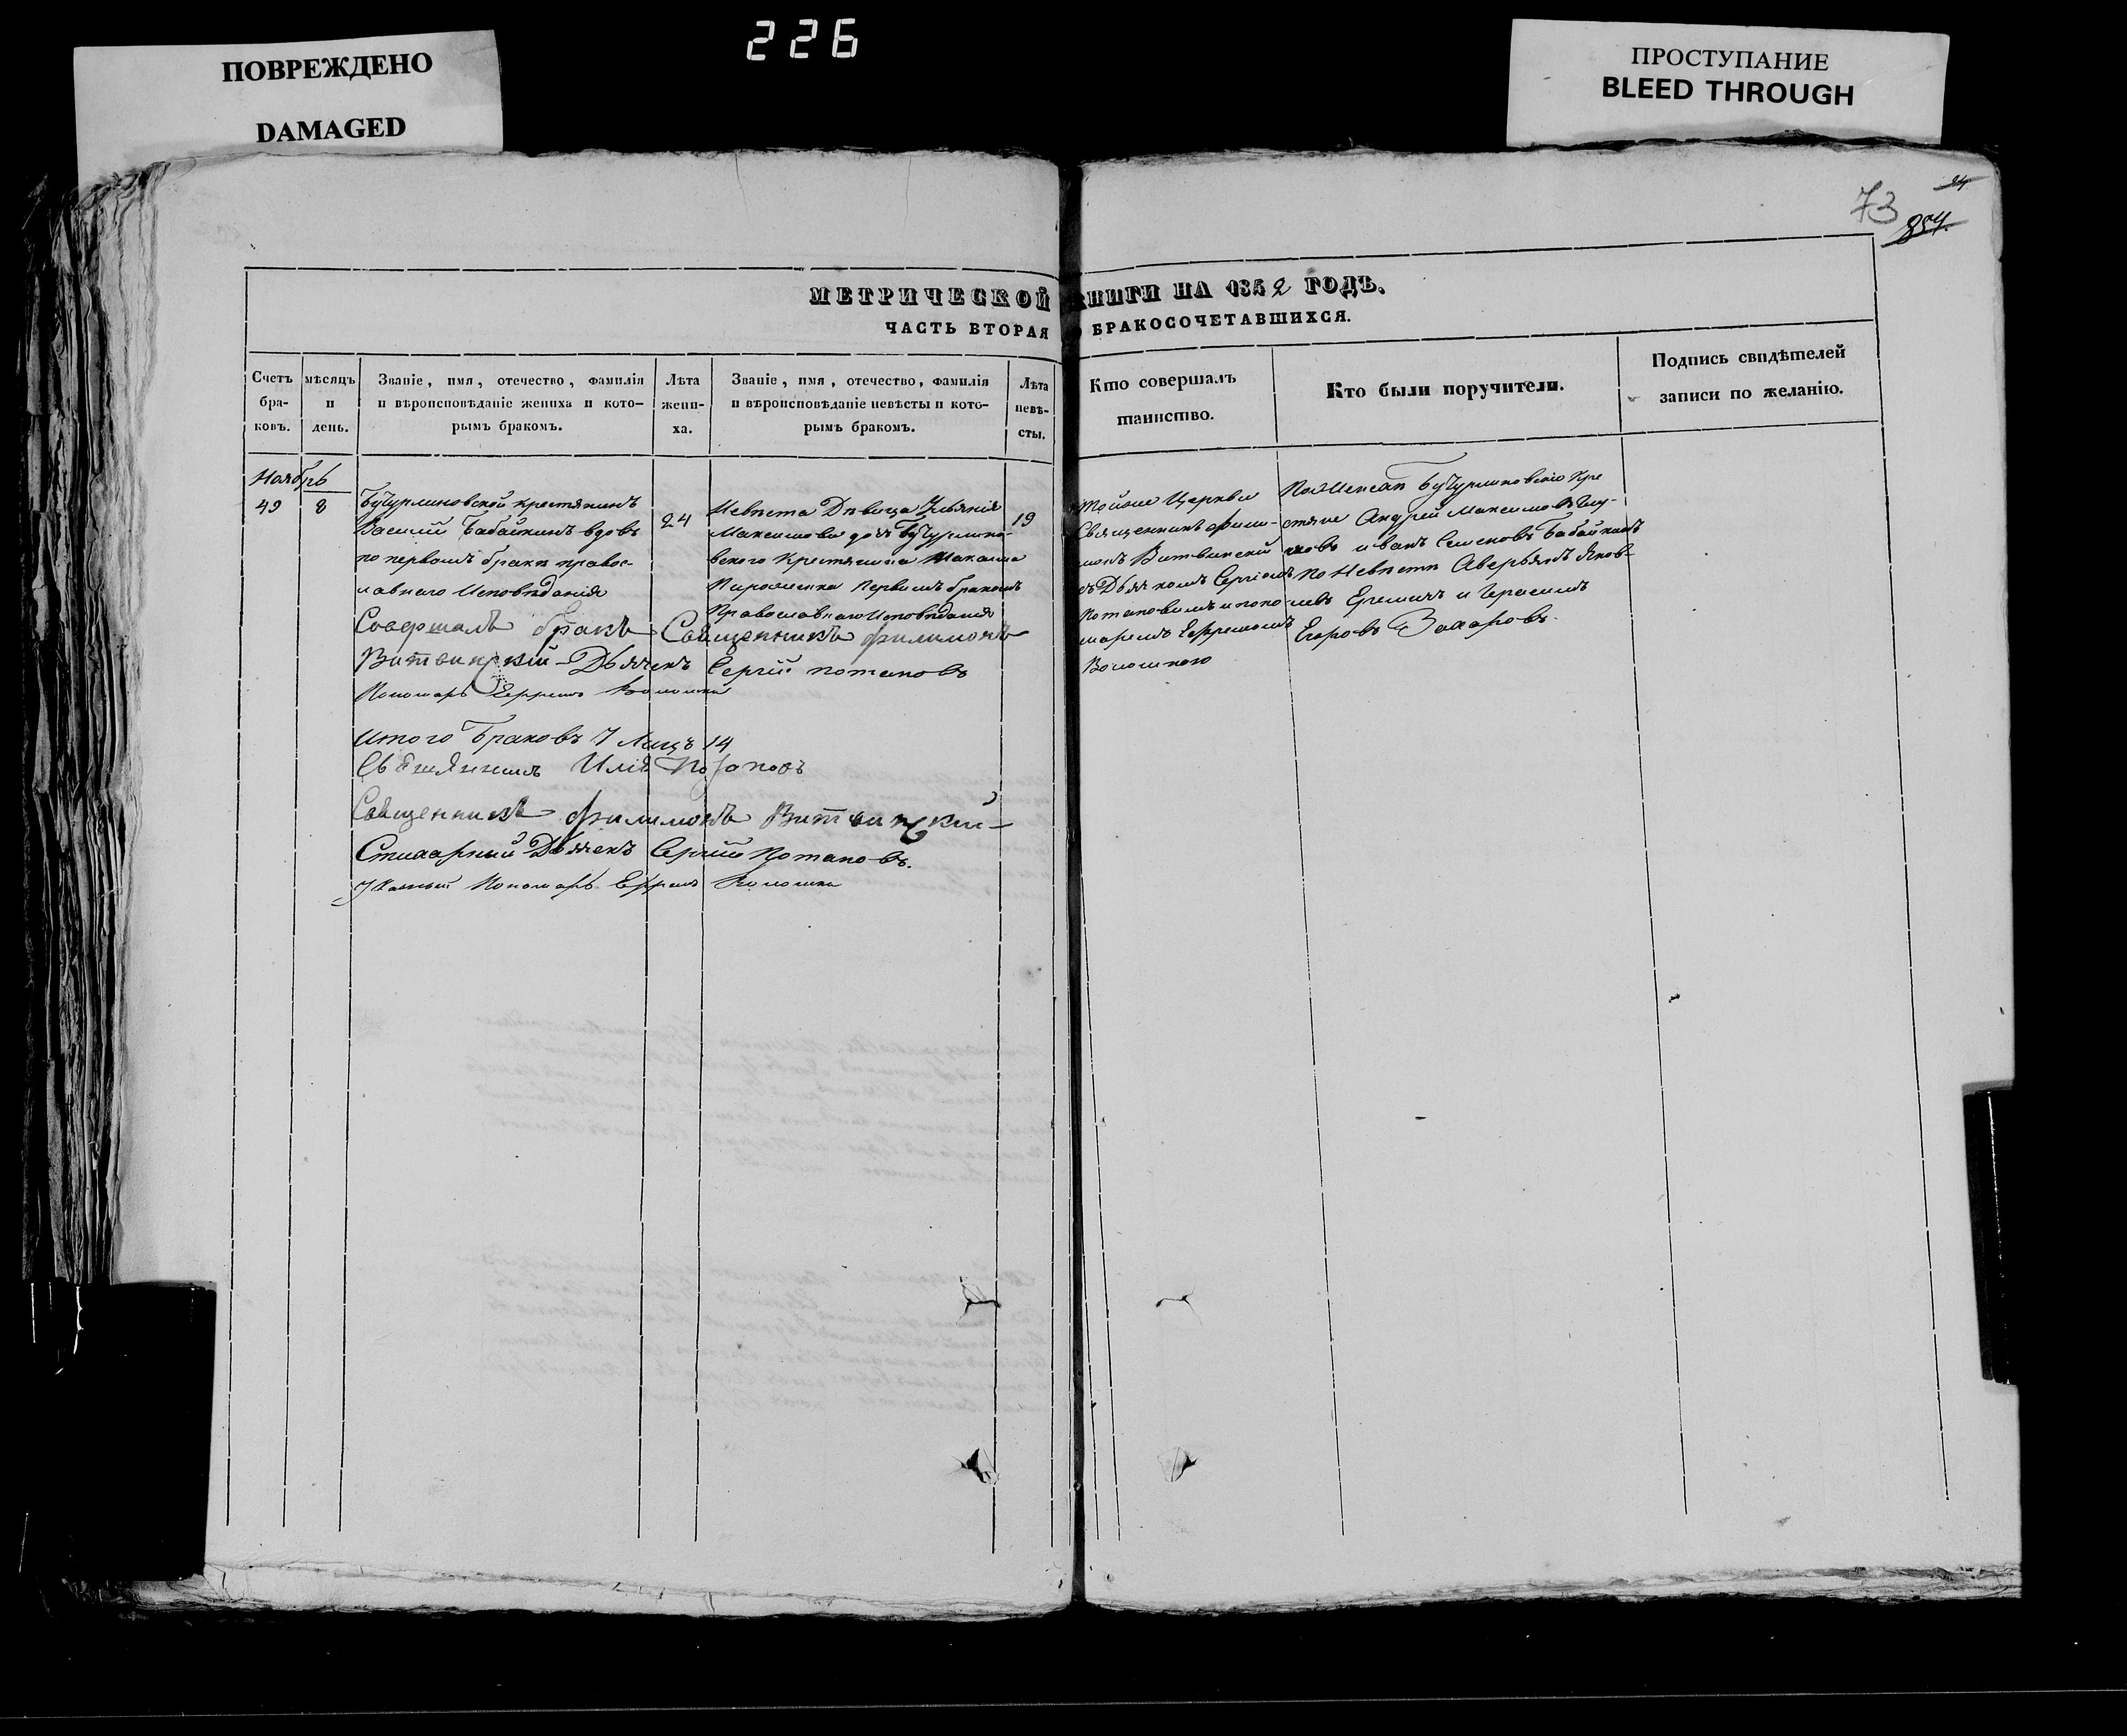 226
ПОВРЕЖДЕНО
DAMAGED
ПРОСТУПАНИЕ
BLEED THROUGH
73
24
854.
МЕТРИЧЕСКОЙ КНИГИ НА 1852 ГОДЪ.
ЧАСТЬ ВТОРАЯ О БРАКОСОЧЕТАВШИХСЯ.
Счетъ
бра-
ковъ.
мѣсяцъ
и
день.
Званіе, имя, отечество, фамилія
и вѣроисповѣданіе жениха и кото-
рымъ бракомъ.
Лѣта
жени-
ха.
Званіе, имя, отечество, фамилія
и вѣроисповѣданіе невѣсты и кото-
рымъ бракомъ.
Лѣта
невѣ-
сты.
Кто совершалъ
таинство.
Кто были поручители.
Подпись свидѣтелей
записи по желанію.
Ноябрь
49
8
Бутурлиновской крестянинъ
Василій Бабайкинъ вдовъ
по первомъ бракѣ правос-
лавнаго Исповѣданія
24
Невѣста Дѣвица Ульянія
Максимова дочь Бутурлино-
вского Крестянина
Первымъ бракомъ
Православнаго Исповѣданія
19
тойже Церкви
Священникъ Фили-
монъ Витвинскій
съ Дьячкомъ Сергіемъ
Потаповымъ и поно-
маремъ Ефремомъ
Волошкою
Бутурлиновскіе Кре
стяне Андрей Максимовъ
и Иванъ Семеновъ Бабайкинъ
по Невѣсте Аверьянъ Яков-
левъ и Герасимъ
Егоровъ Захаровъ.
Совершалъ бракъ Священникъ Филимонъ
Витвинскій Дьячекъ Сергій Потаповъ
Пономарь Ефремъ Волошка
Итого Браковъ 7 Лицъ 14
Илія
Священникъ Филимонъ Витвинскій
Стихарный Дьячекъ Сергій Потаповъ.
Указный Пономарь Ефремъ Волошка